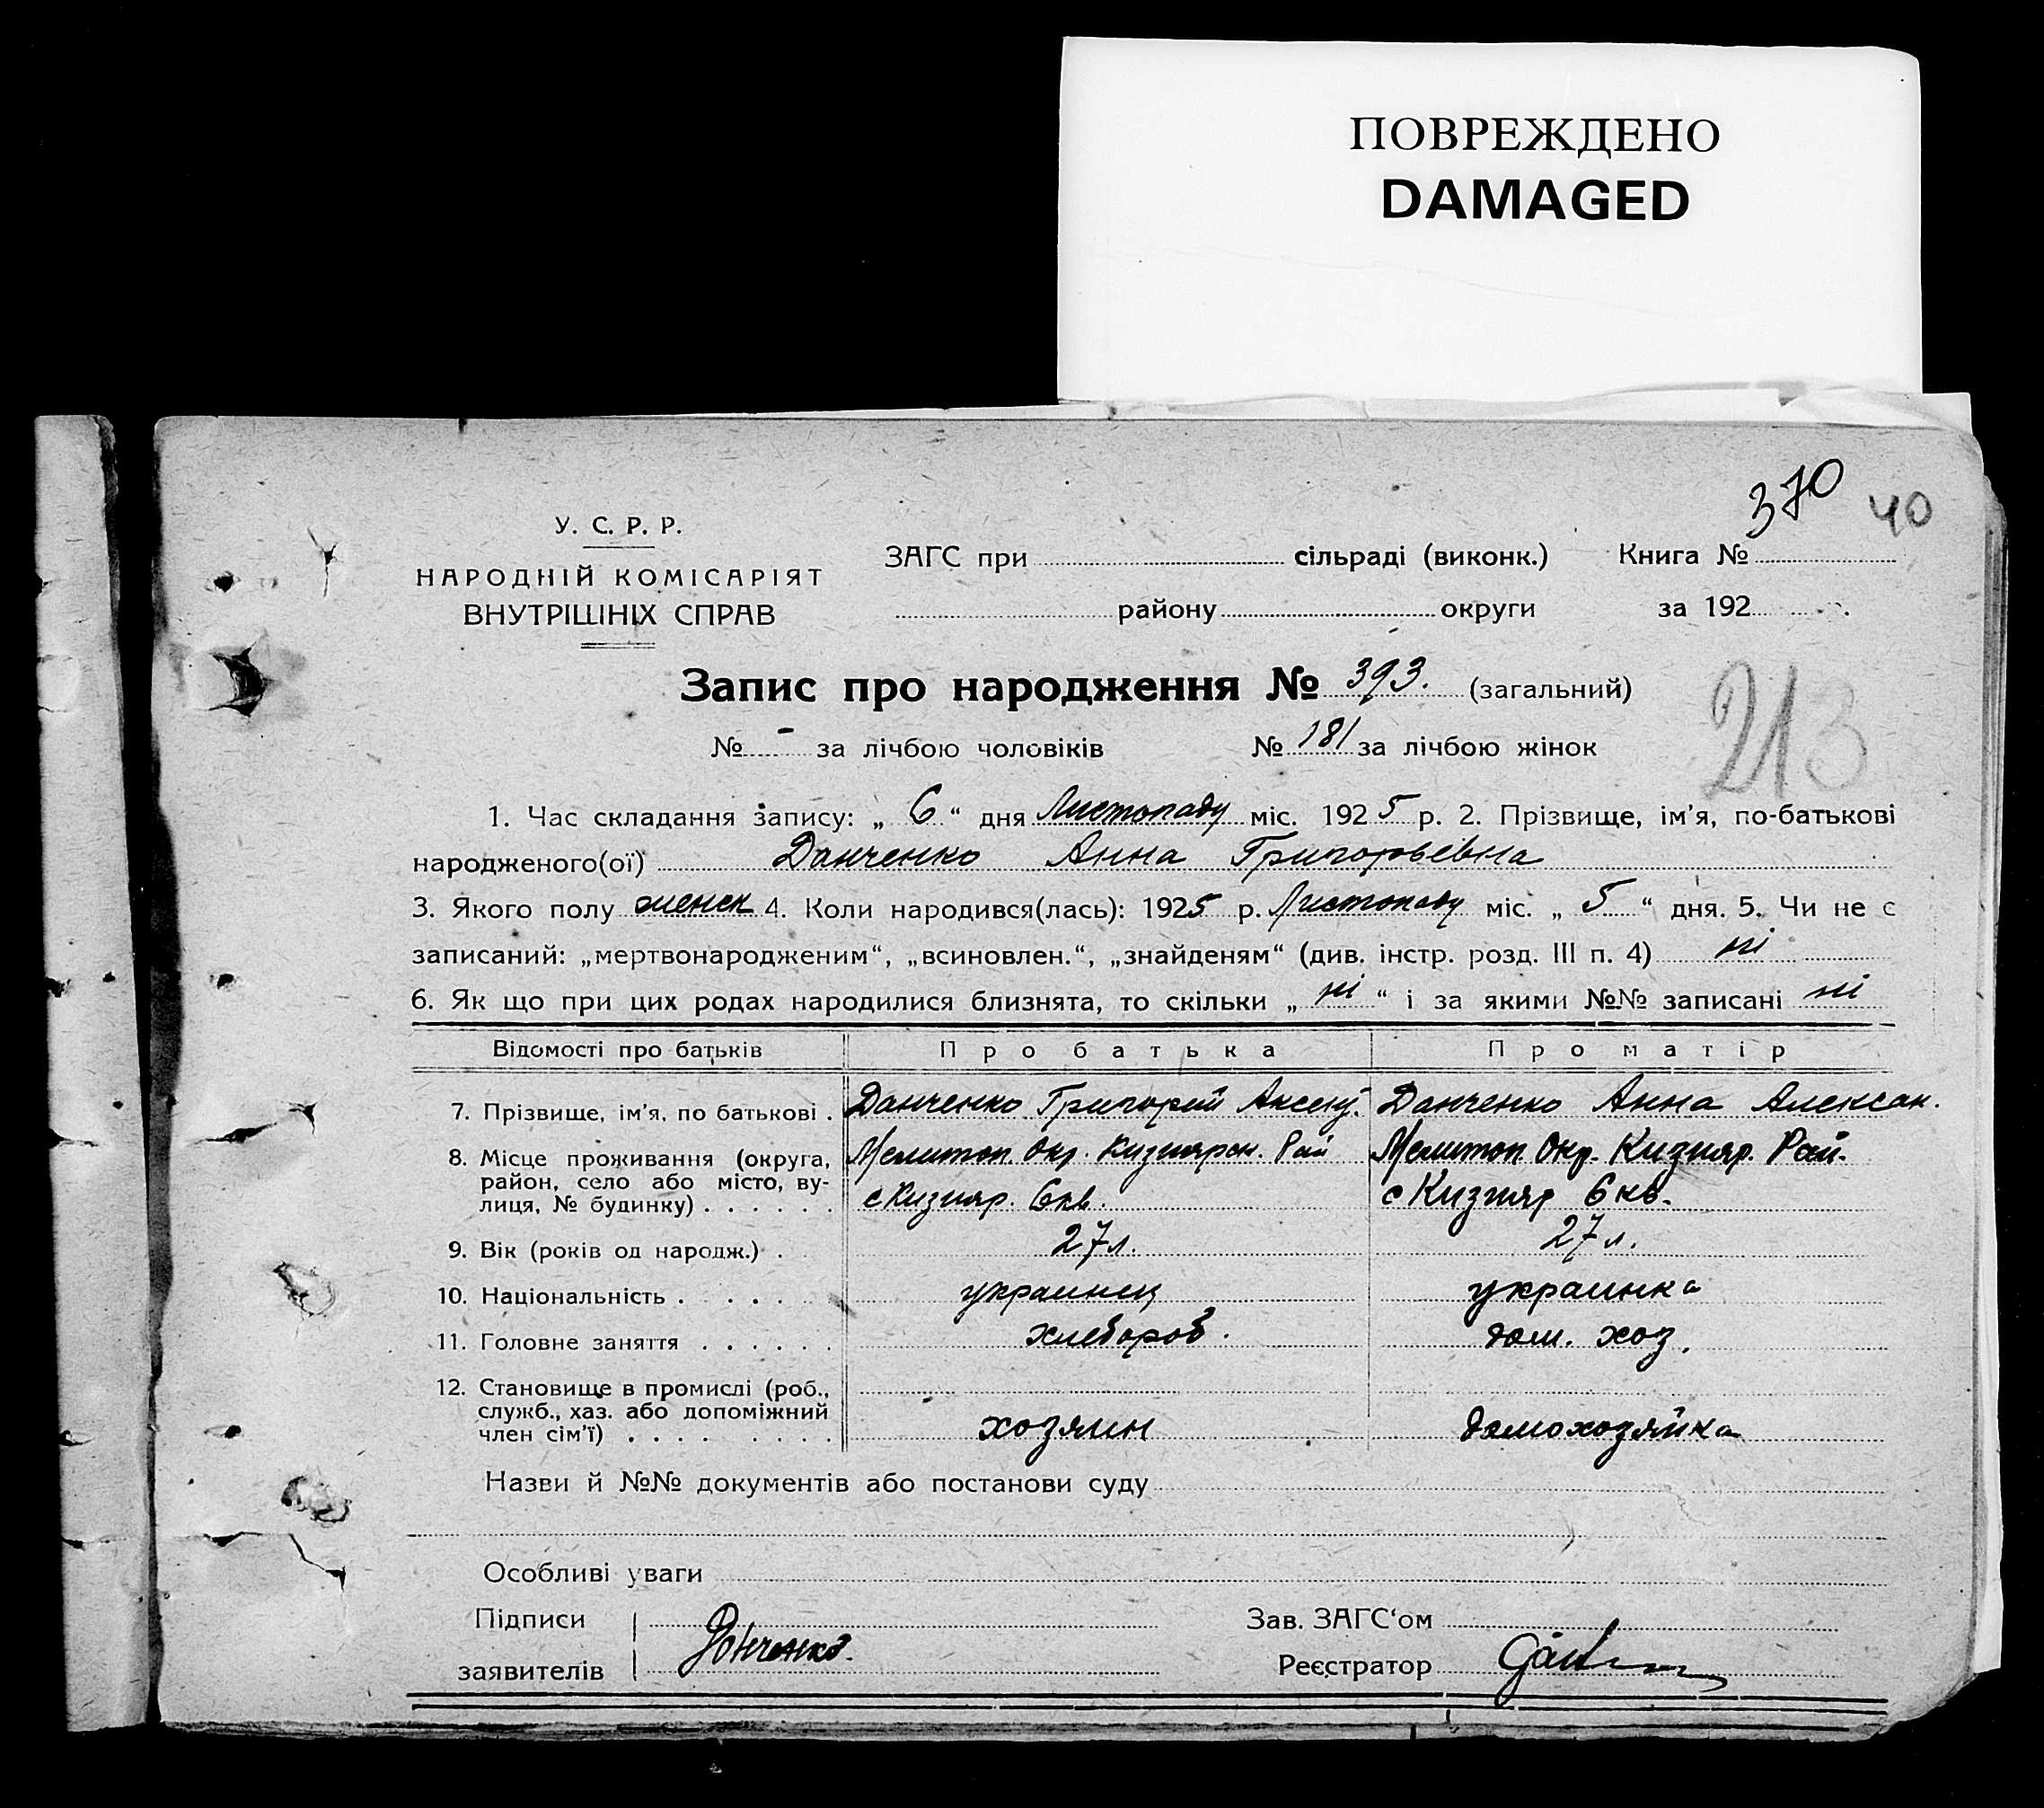 ПОВРЕЖДЕНО
DAMAGED
370
40
У. С. Р. Р.
НАРОДНІЙ КОМІСАРІЯТ
ВНУТРІШНІХ СПРАВ
ЗАГС при сільраді (виконк.) Книга №
району округи за 192
Запис про народження № 393. (загальний)
213
№ - за лічбою чоловіків № 181 за лічбою жінок
1. Час складання запису: „ 6 “ дня Листопаду міс. 1925 р. 2. Прізвище, ім’я, по-батькові
народженого(ої) Данченко Анна Григорьевна
3. Якого полу женск 4. Коли народився(лась): 1925 р. Листопаду міс. „ 5 “ дня. 5. Чи не є
записаний: „мертвонародженим“, „всиновлен.“, „знайденям“ (див. інстр. розд. III п. 4) ні
6. Як що при цих родах народилися близнята, то скільки „ ні “ і за якими №№ записані ні
Відомості про батьків Про батька Про матір
7. Прізвище, ім’я, по батькові . Данченко Григорий Данченко Анна Алексан.
8. Місце проживання (округа, Мелитоп. Окр. Кизиярск. Рай Мелитоп. Окр. Кизияр. Рай.
район, село або місто, ву-
лиця, № будинку) . . . . . . с Кизияр. 6 кв. с Кизияр 6 кв.
9. Вік (років од народж.) . 27 л. 27 л.
10. Національність . . . . . украинец украинка
11. Головне заняття . . . . . . хлебороб. дом. хоз.
12. Становище в промислі (роб.,
служб., хаз. або допоміжний
член сім’ї) . . . . . . . . хозяин домохозяйка
Назви й №№ документів або постанови суду
Особливі уваги
Підписи Зав. ЗАГС‘ом
заявителів Данченко. Реєстратор